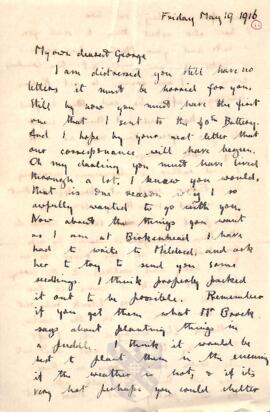 Friday May 19 1916
My own dearest George
I am distressed you still have no
letters it must be horrid for you.
Still by now you must have the first
one that I sent to the 40th Battery.
And I hope by your next letter that
our correspondance will have begun.
Oh my darling you must have lived
through a lot. I knew you would,
that is one reason why I so
awfully wanted to go with you.
Now about the things you want
as I am at Birkenhead I have
had to write to Mildred, and ask
her to try to send you some
seedlings. I think properly packed
it ought to be possible. Remember
if you get them what Mr Brock
says about planting things in
a puddle. I think it would be
best to plant them in the evening
if the weather is hot, & if its
very hot perhaps you could shelter